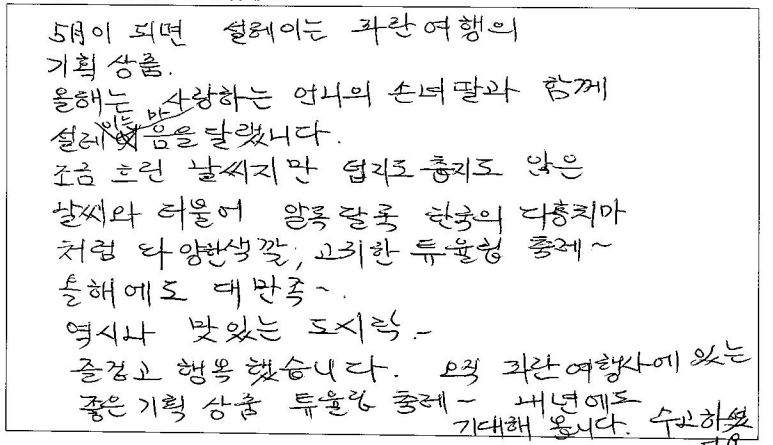 5月이 되면 설레이는 파란여행의
기획 상품.
올해는 사랑하는 언니의 손녀딸과 함께
설레이는 마음을 달랬습니다.
조금 흐린 날씨지만 덥지도 춥지도 않은
날씨와 더불어 알록달록 한국의 다홍치마
처럼 다양한색깔, 고귀한 튜율립 축제~
올해에도 대만족~.
역시나 맛있는 도시락~
즐겁고 행복했습니다. 오직 파란여행사에 있는
좋은 기획 상품 튜율립 축제~ 내년에도
기대해 봅니다. 수고하셨